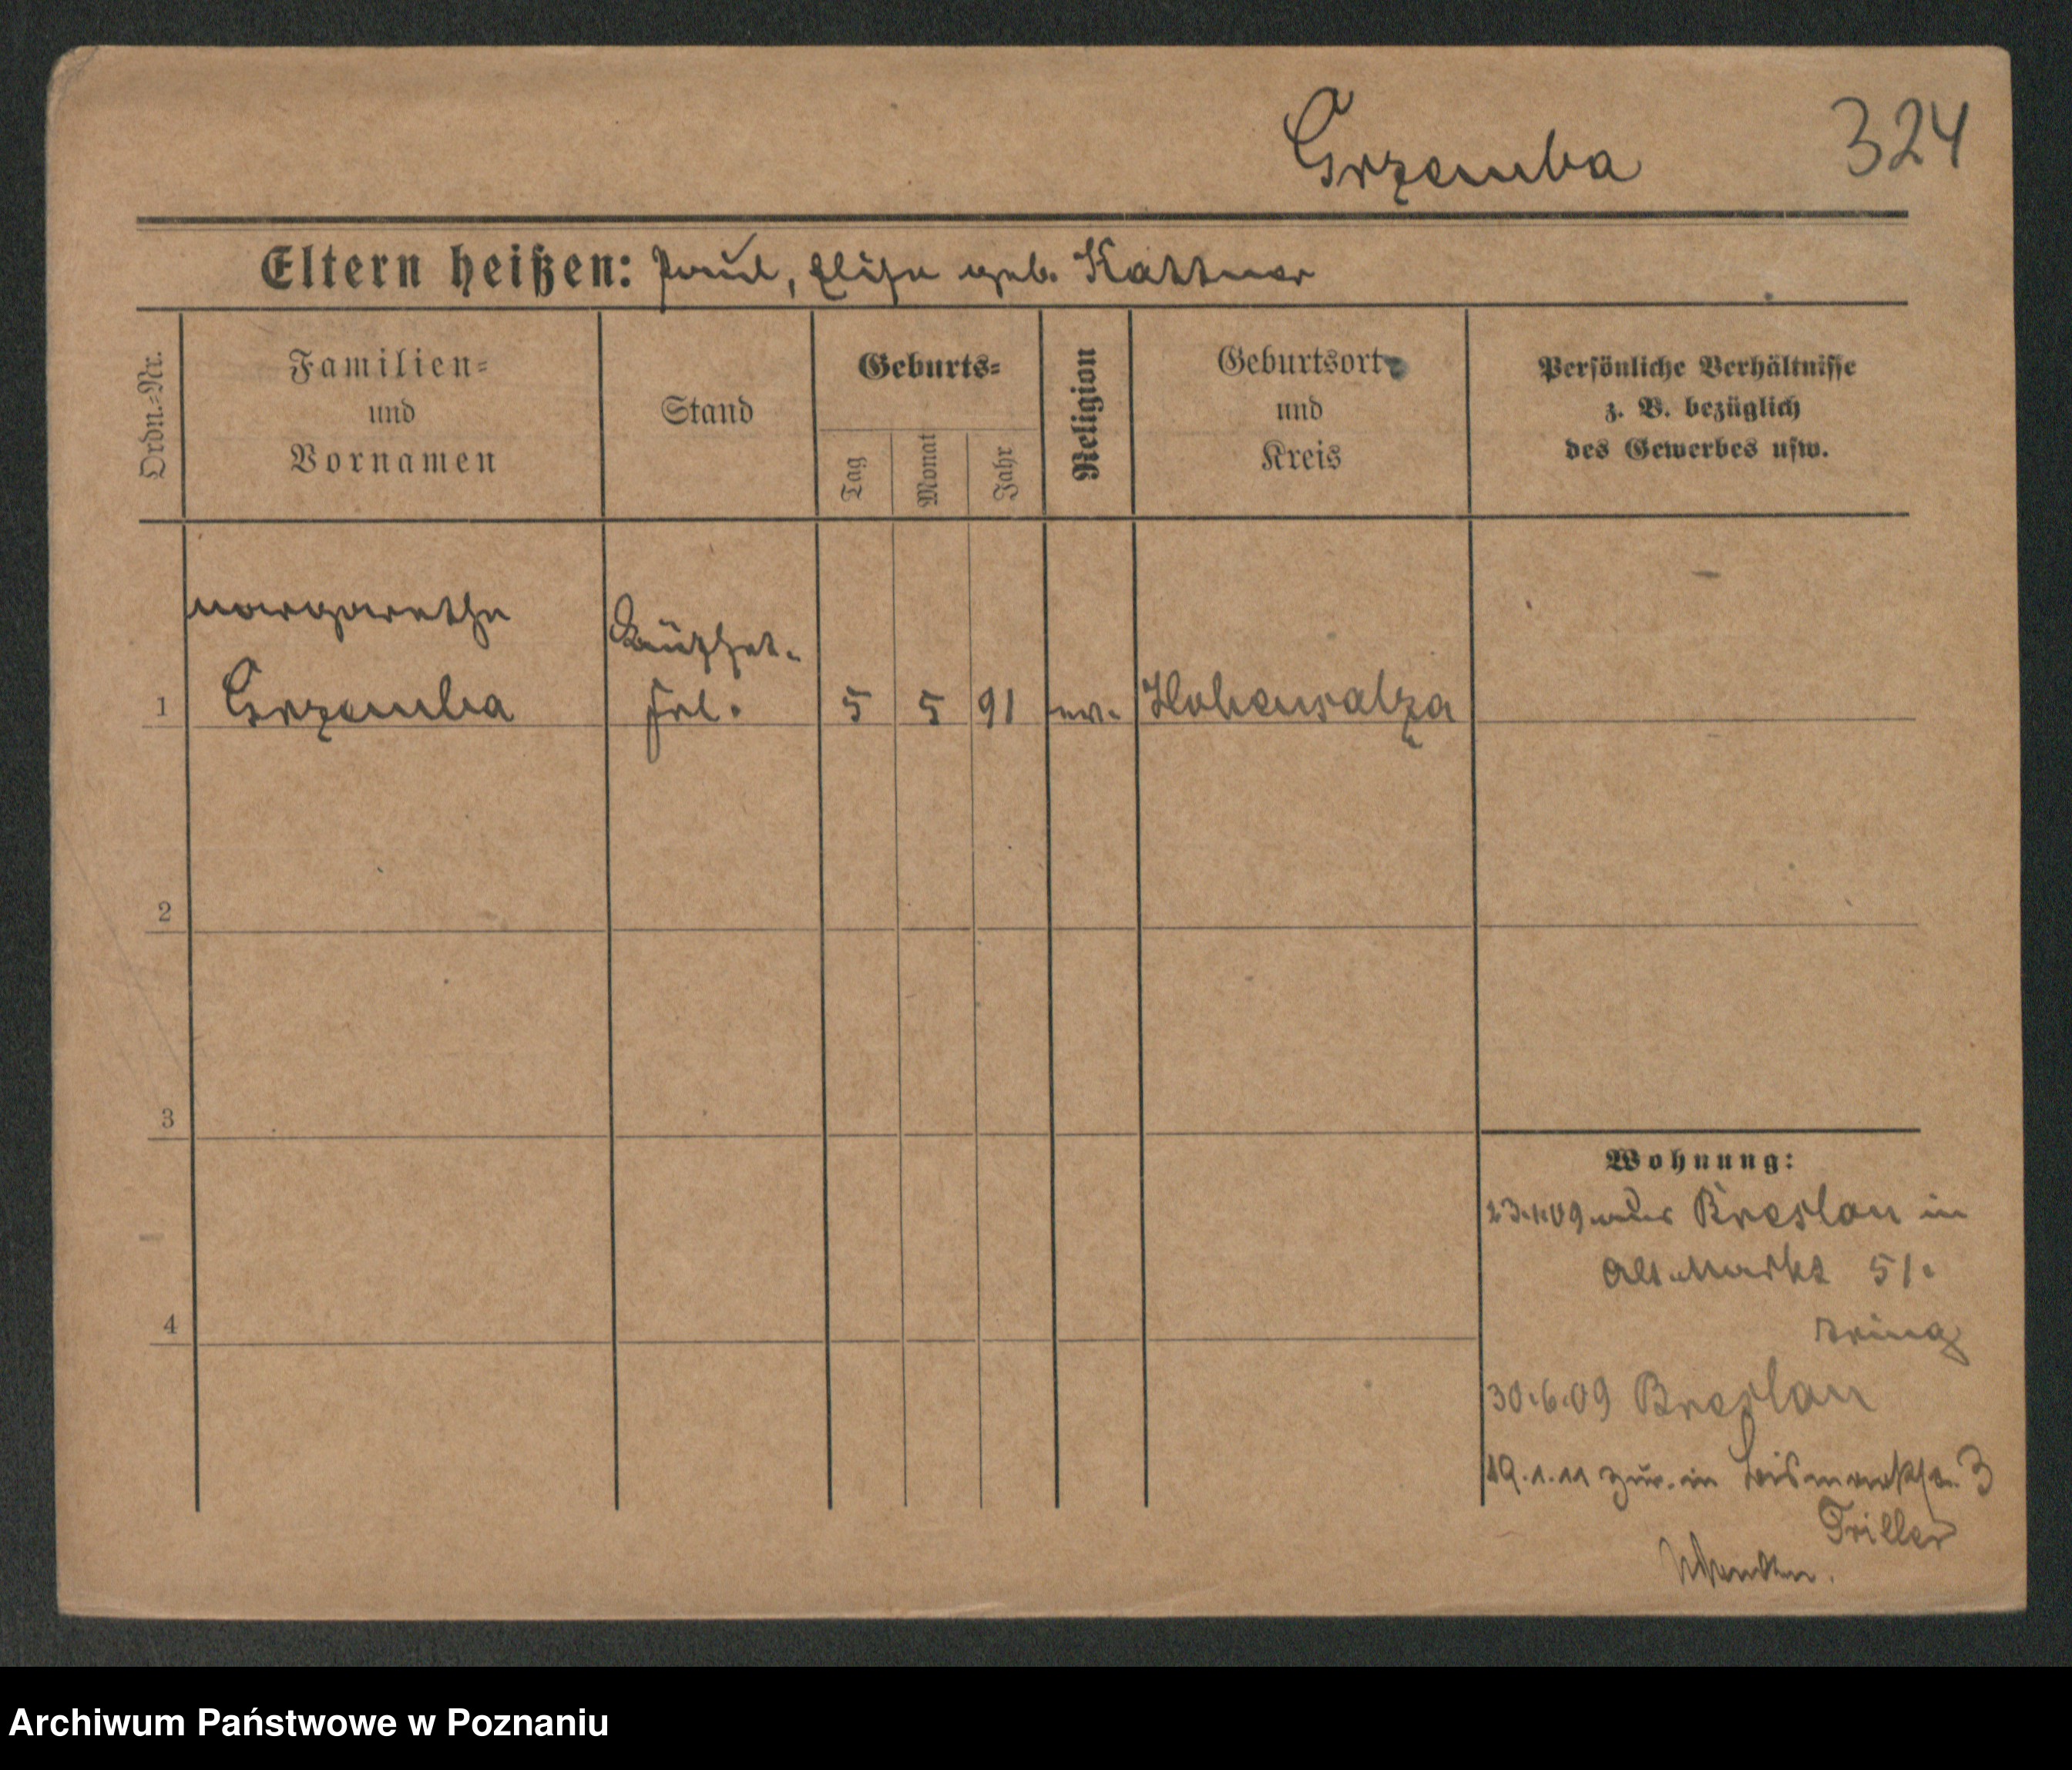 Grzemba 324
Eltern heißen: Paul, Elise geb. Kattner
Ordn.=Nr.
Familien=
und
Vornamen
Stand
Geburts=
Tag
Monat
Jahr
Religion
Geburtsort
und
Kreis
Persönliche Verhältnisse
z. B. bezüglich
des Gewerbes usw.
Margarethe
Grzemba
Frl.
1
5 5 91 ev. Hohensalza
2
3
4
Wohnung:
23.1.09 aus Breslau in
Alt. Markt 51.
30.6.09 Breslau
19.1.11 zur. in Bismarckstr. 3
Triller
Archiwum Państwowe w Poznaniu